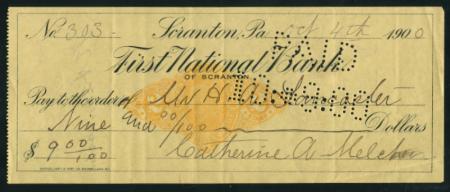 No. 303- Scranton, Pa. Oct 4th 1900
PAID
First National Bank
OF SCRANTON
10.9.00
Pay to the order of Mr H. A. Lancaster
Nine and 00/100 Dollars
$ 9 00/100 Catherine A Melchior